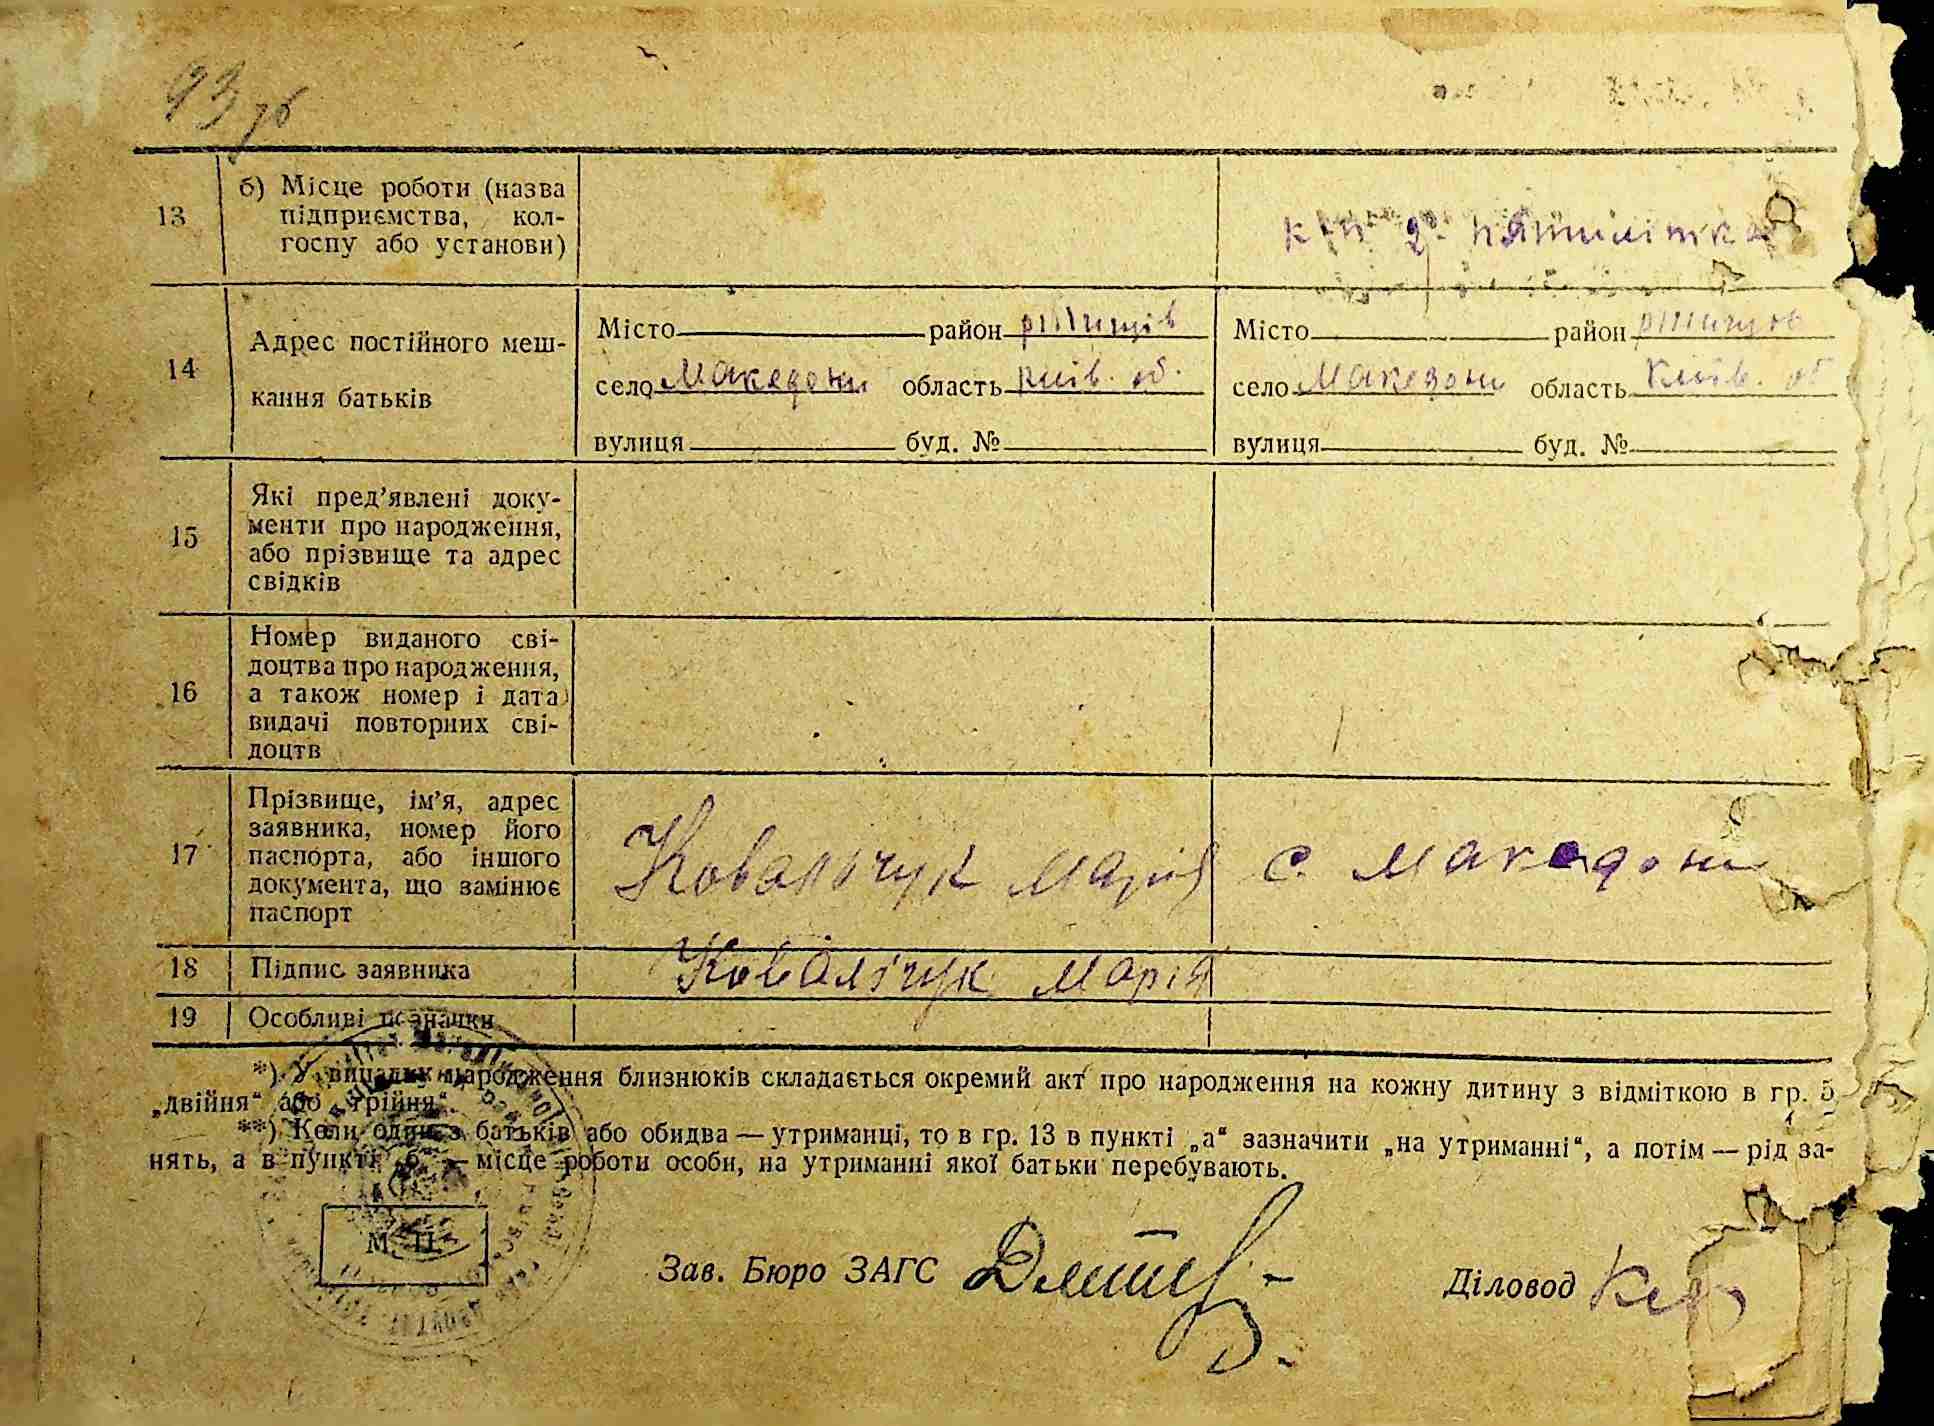 93 зб
13
б) Місце роботи (назва
підприємства, кол-
госпу або установи)
к-п 2. пятилітка
14
Адрес постійного меш-
кання батьків
Місто район ржищів
село Македони область київ. об.
вулиця буд. №
Місто район ржищов
село Македони область київ. об
вулиця буд. №
15
Які пред’явлені доку-
менти про народження,
або прізвище та адрес
свідків
16
Номер виданого сві-
доцтва про народження,
а також номер і дата
видачі повторних сві-
доцтв
17
Прізвище, ім’я, адрес
заявника, номер його
паспорта, або іншого
документа, що замінює
паспорт
Ковальчук Марія с. Македони
18
Підпис заявника
Ковалічук Марія
19
Особливі позначки
*) У випадку народження близнюків складається окремий акт про народження на кожну дитину з відміткою в гр. 5
„двійня“ або „трійня“.
**) Коли один з батьків або обидва — утриманці, то в гр. 13 в пункті „а“ зазначити „на утриманні“, а потім — рід за-
нять, а в пункті „б“ — місце роботи особи, на утриманні якої батьки перебувають.
М. П.
Зав. Бюро ЗАГС
Діловод